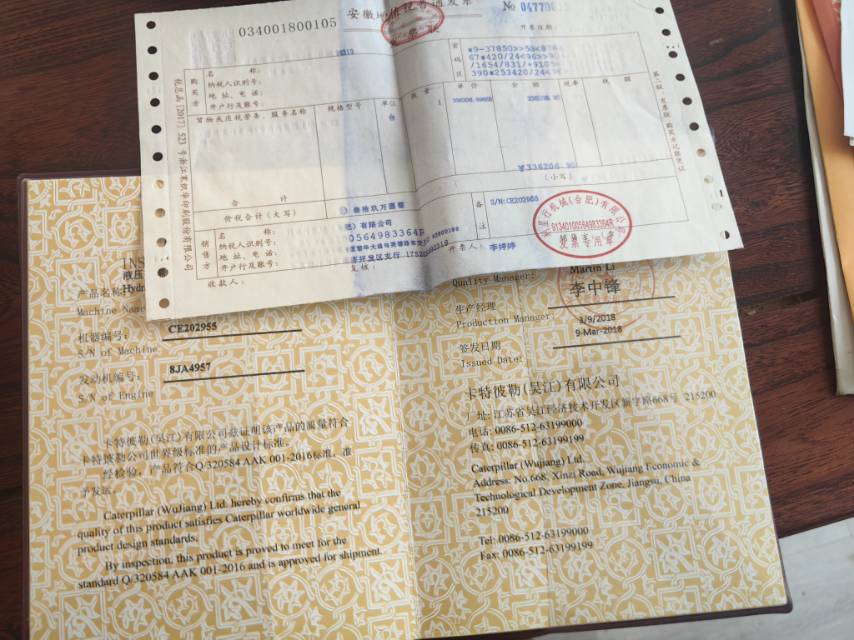 034001800105
№ 04770
开票日期:
2019
名 称:
纳税人识别号:
地址、电话:
开户行及账号:
购买方
密码区
*9-37850>>5
67*420/24<96>>
/1654/831/+910
390*253420/24<9
货物或应税劳务、服务名称
规格型号
单位
数量
单价
金额
税率
税额
台
1
¥336206.90
合 计
价税合计(大写)
叁拾玖万圆整
(小写)
销售方
名 称:
纳税人识别号:
地址、电话:
开户行及账号:
肥)有限公司
0564983364
备注
S/N:CE202955
收款人:
复核:
开票人: 李婷婷
913401000564983364R
发票专用章
第二联:发票联 购买方记账凭证
INS
液压
产品名称
Hydr
Machine Name
机器编号:
S/N of Machine
CE202955
发动机编号:
S/N of Engine
8JA4957
卡特彼勒(吴江)有限公司兹证明该产品的质量符合
卡特彼勒公司世界级标准的产品设计标准.
经检验,产品符合Q/320584 AAK 001-2016标准,准
予发运.
Caterpillar (WuJiang) Ltd. hereby confirms that the
quality of this product satisfies Caterpillar worldwide general
product design standards.
By inspection, this product is proved to meet for the
standard Q/320584 AAK 001-2016 and is approved for shipment.
Quality Manager:
Martin Li
李中锋
生产经理
Production Manager:
3/9/2018
9-Mar-2018
签发日期
Issued Date:
卡特彼勒(吴江)有限公司
厂址:江苏省吴江经济技术开发区新字路668号 215200
电话: 0086-512-63199000
传真: 0086-512-63199199
Caterpillar (Wujiang) Ltd.
Address: No.668, Xinzi Road, Wujiang Economic &
Technological Development Zone, Jiangsu, China
215200
Tel: 0086-512-63199000
Fax: 0086-512-63199199